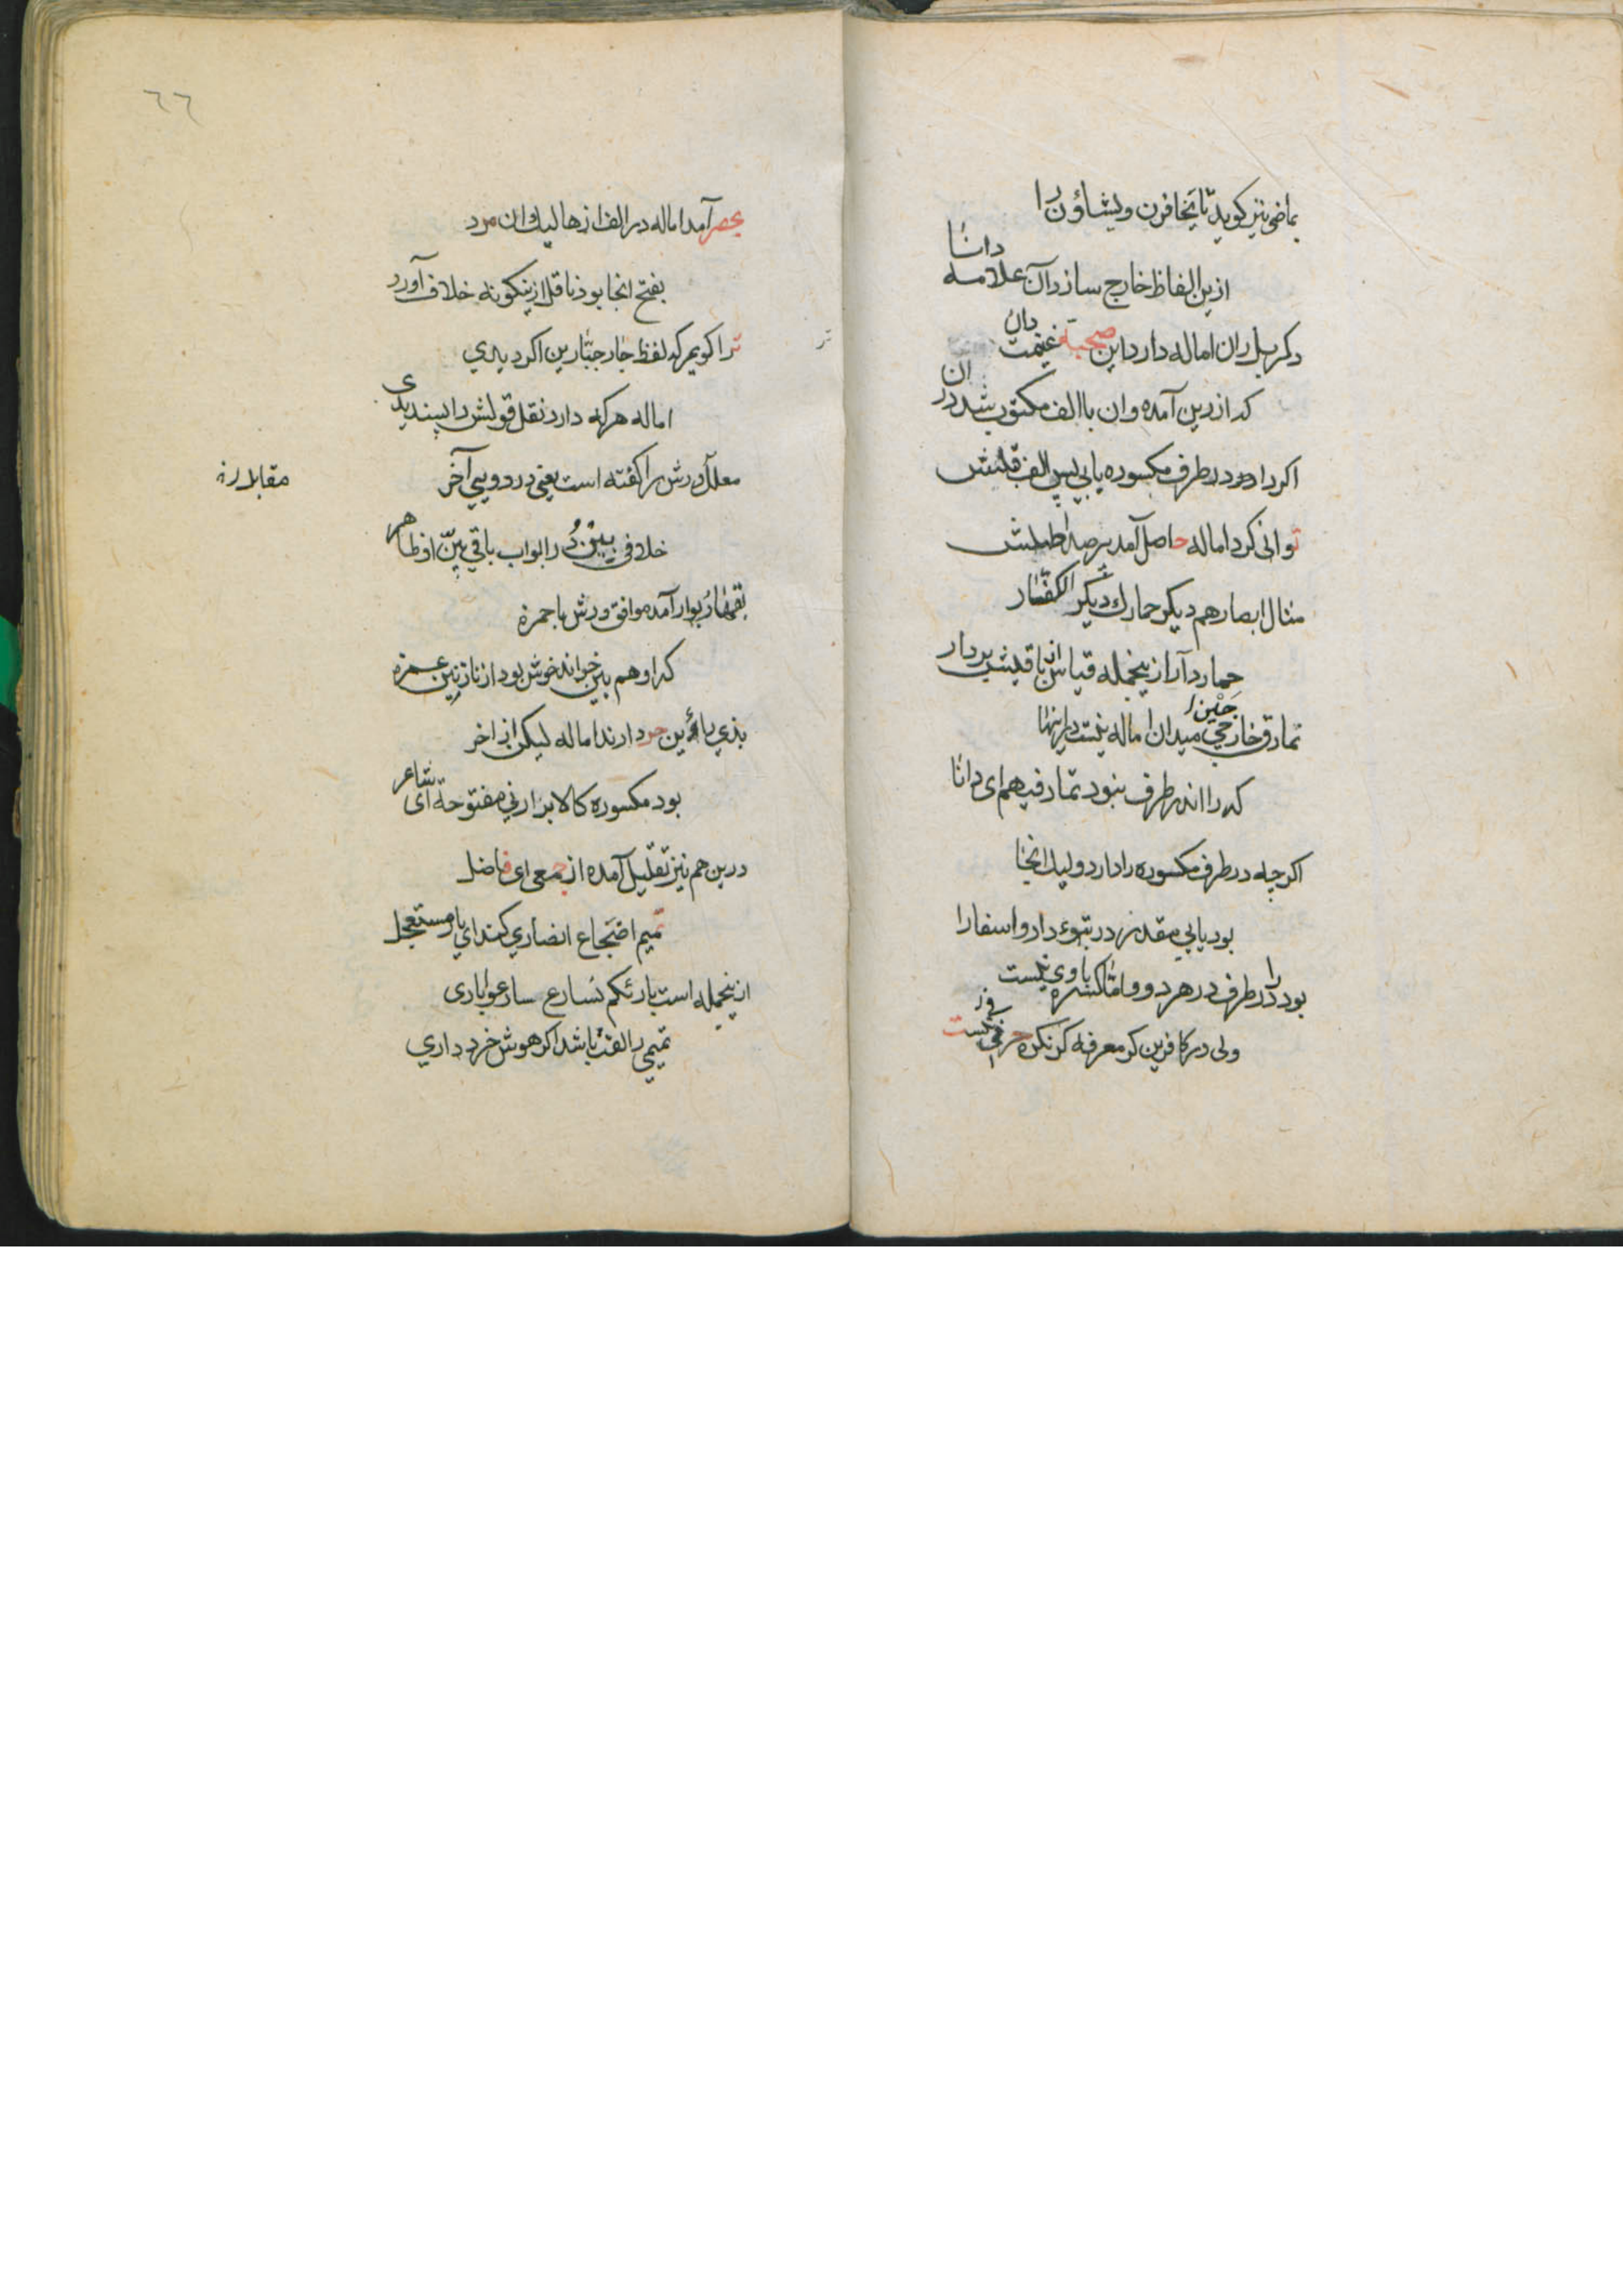 بماضی نیز کوید تا یخافرن ویشاؤن را
ازین الفاظ خارج سازد آن علامه دانا
دکر بل ران اماله دارد این صحبة غنیمت دان
که از رین آمده وان با الف مکتوب شد در ان
اکر دارد در طرف مکسوره یابی پس الف قلبش
توانی کرد اماله حاصل آمد
مثال ابصارهم دیکر حمارك دیکر الکفار
حمار دآر ازینجمله قیاس ان با
تمارق خارجی میدان اماله نیست در اینها
که را اندر طرف نبود تمار فیهم ای دانا
اکرچه در طرف مکسوره را دارد ولیك انجا
بود یابی مقدر در تبوء دار واسفارا
بود را در طرف در هر دو واما کسره باوی نیست
ولی در کافرین کر معرفه کر نکره حرفی
٦٦
بحصر آمد اماله در الف از ها لیك وان مرد
بفتح انجا بود ناقل ازینکونه خلاف آورد
ترا کویم که لفظ جار جبارین اکر دیدی
اماله هر که دارد نقل قولش را پسندیدی
معلل ورش را کفته است یعنی در دویی آخر
خلافی بین در ابواب باقی بین از ظاهر
بقهار بوار آمد موافق ورش با حمزه
که او هم بین خواند خوش بود از نازنین غمزه
بذی رائین دارند اماله لیکن از اخر
بود مکسوره کالابرار نی مفتوحة ای شاعر
درین هم نیز تقلیل آمده از جمعی ای فاضل
تمیم اضجاع انصاری کند ای یار مستعجل
ازینجمله است بارئکم نسارع سارعوا باری
تمیمی را لغت باشد اکر هوش خرد داری